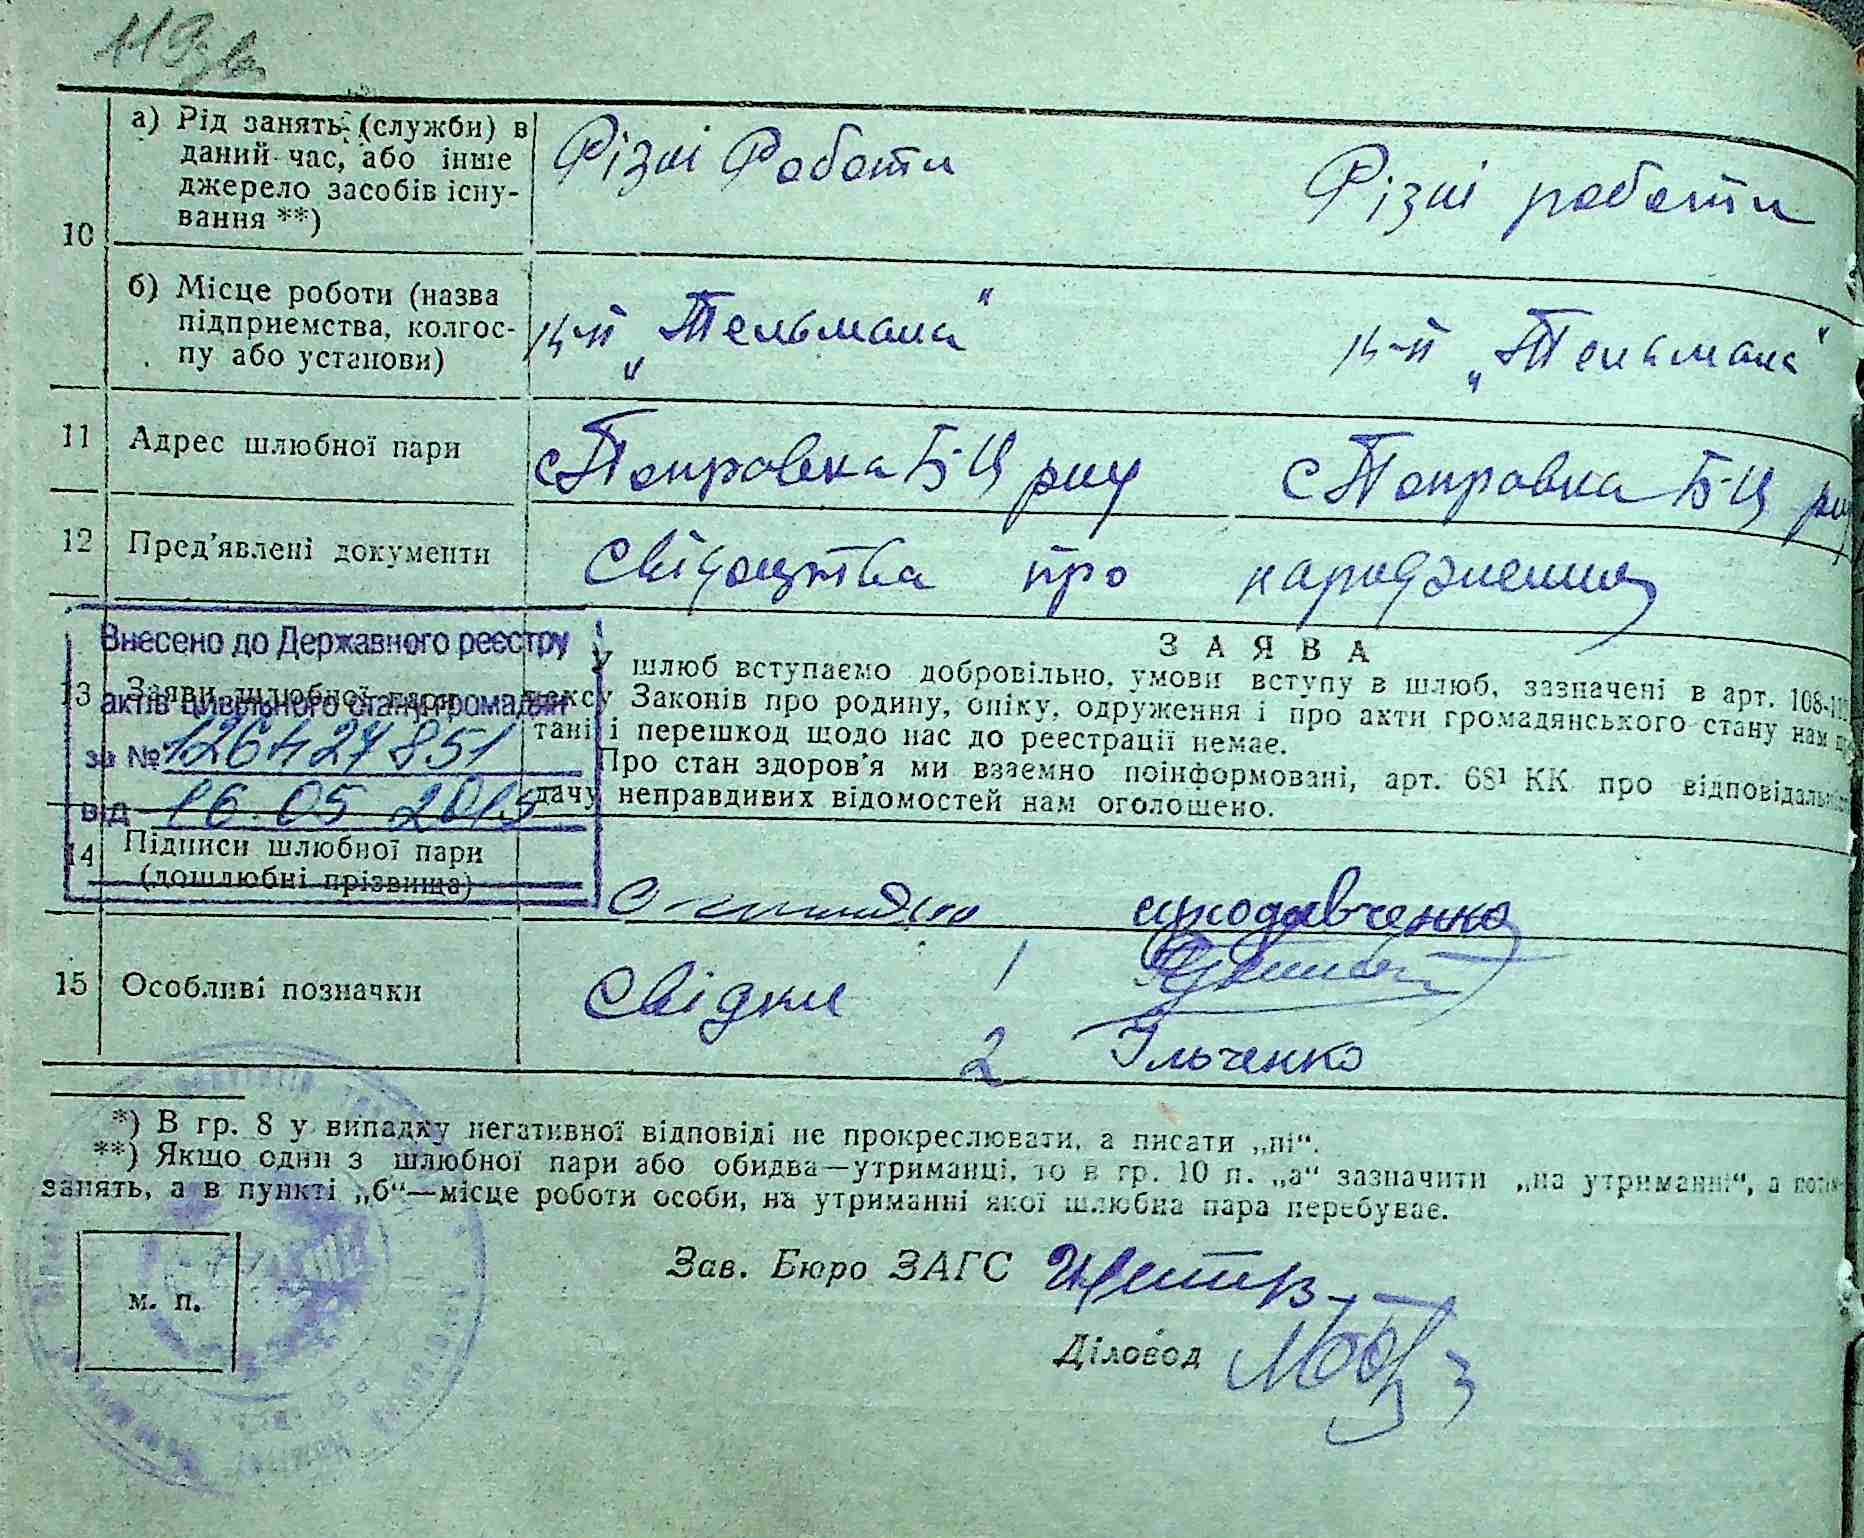 119зв
10
а) Рід занять (служби) в
даний час, або інше
джерело засобів існу-
вання **)
Різні Роботи
Різні роботи
б) Місце роботи (назва
підприємства, колгос-
пу або установи)
к-п „Тельмана“
к-п „Тельмана“
11
Адрес шлюбної пари
с Покровка Б-Ц р-ну
с Покровка Б-Ц
12
Пред'явлені документи
Свідоцтва про народження
Внесено до Державного реєстру
актів цивільного стану громадян
за № 126427851
від 16.05 2015
13
Заяви шлюбної пари
ЗАЯВА
У шлюб вступаємо добровільно, умови вступу в шлюб, зазначені в арт. 108-
Законів про родину, опіку, одруження і про акти громадянського стану нам
тані і перешкод щодо нас до реєстрації немає.
Про стан здоров'я ми взаємно поінформовані, арт. 68¹ КК про
дачу неправдивих відомостей нам оголошено.
14
Підписи шлюбної пари
(дошлюбні прізвища)
15
Особливі позначки
Свідки 1
2 Ільченко
*) В гр. 8 у випадку негативної відповіді не прокреслювати, а писати „ні“.
**) Якщо один з шлюбної пари або обидва—утриманці, то в гр. 10 п. „а“ зазначити „на утриманні“, а
занять, а в пункті „б“—місце роботи особи, на утриманні якої шлюбна пара перебуває.
м. п.
Зав. Бюро ЗАГС
Діловод